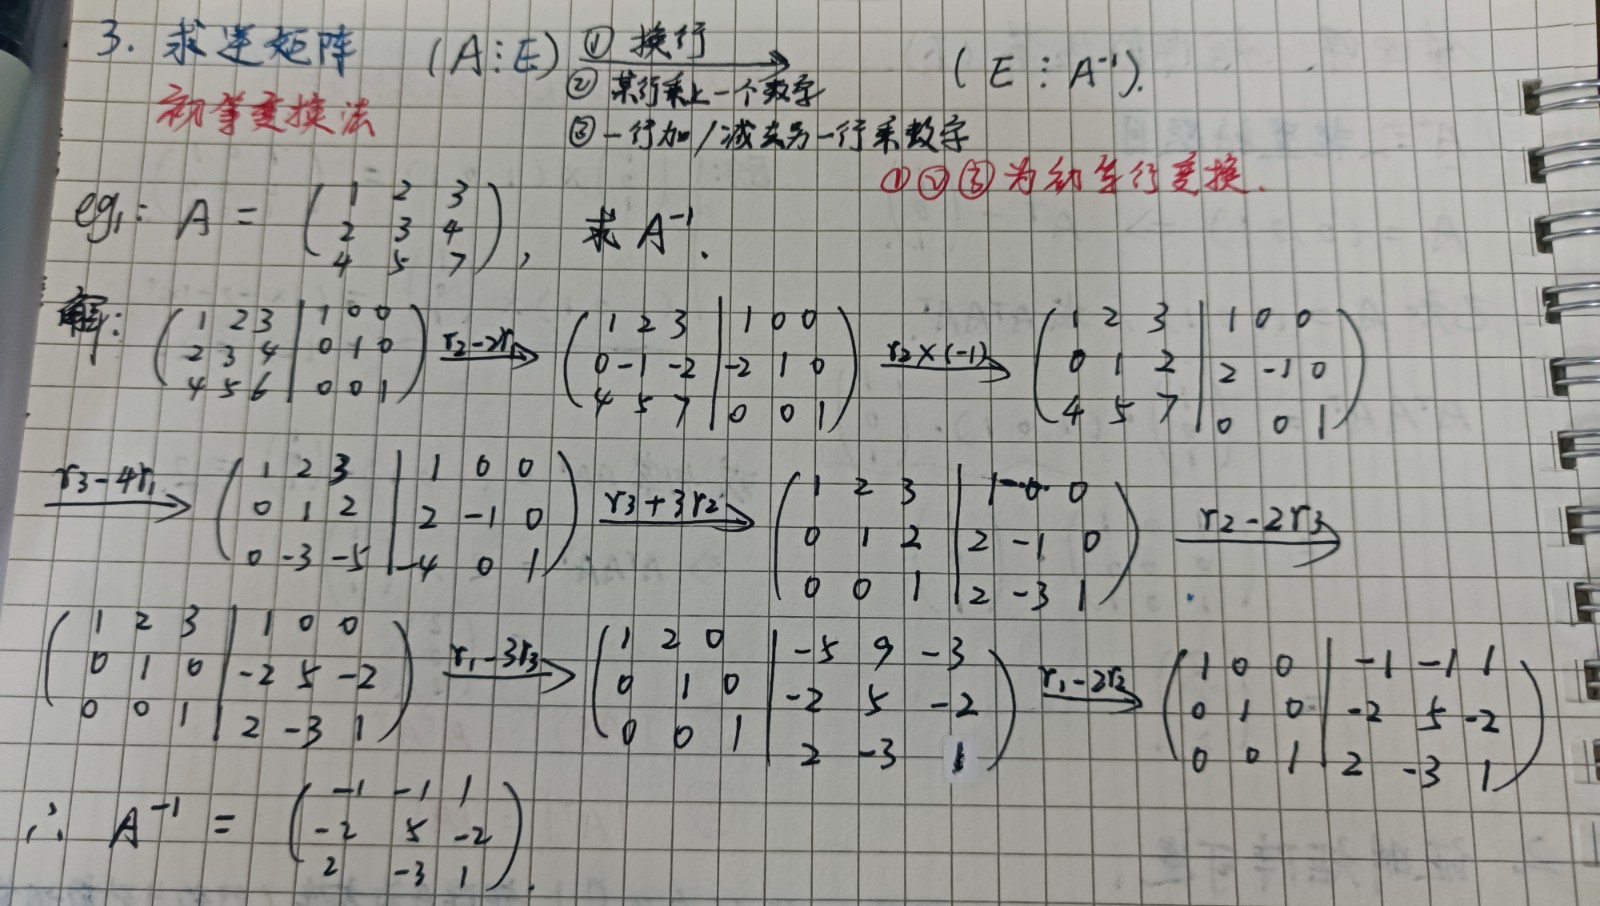 3. 求逆矩阵 (A⋮E) ① 换行 → (E⋮A⁻¹).
初等变换法 ② 某行乘上一个数字
③ 一行加/减去另一行乘数字
①②③为初等行变换.
eg₁: A = ( 1 2 3 ; 2 3 4 ; 4 5 7 ), 求 A⁻¹.
解: ( 1 2 3 | 1 0 0 ; 2 3 4 | 0 1 0 ; 4 5 6 | 0 0 1 ) r₂-2r₁ → ( 1 2 3 | 1 0 0 ; 0 -1 -2 | -2 1 0 ; 4 5 7 | 0 0 1 ) r₂×(-1) → ( 1 2 3 | 1 0 0 ; 0 1 2 | 2 -1 0 ; 4 5 7 | 0 0 1 )
r₃-4r₁ → ( 1 2 3 | 1 0 0 ; 0 1 2 | 2 -1 0 ; 0 -3 -5 | -4 0 1 ) r₃+3r₂ → ( 1 2 3 | 1 0 0 ; 0 1 2 | 2 -1 0 ; 0 0 1 | 2 -3 1 ) r₂-2r₃ →
( 1 2 3 | 1 0 0 ; 0 1 0 | -2 5 -2 ; 0 0 1 | 2 -3 1 ) r₁-3r₃ → ( 1 2 0 | -5 9 -3 ; 0 1 0 | -2 5 -2 ; 0 0 1 | 2 -3 1 ) r₁-2r₂ → ( 1 0 0 | -1 -1 1 ; 0 1 0 | -2 5 -2 ; 0 0 1 | 2 -3 1 )
∴ A⁻¹ = ( -1 -1 1 ; -2 5 -2 ; 2 -3 1 ).